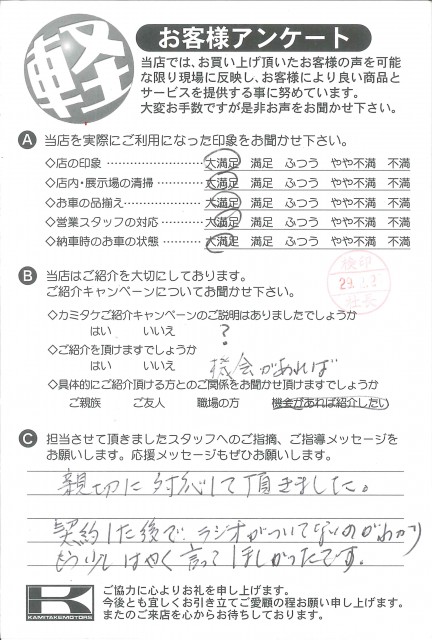 軽
お客様アンケート
当店では、お買い上げ頂いたお客様の声を可能
な限り現場に反映し、お客様により良い商品と
サービスを提供する事に努めています。
大変お手数ですが是非お声をお聞かせ下さい。
A 当店を実際にご利用になった印象をお聞かせ下さい。
◇店の印象 ………………… 大満足 満足 ふつう やや不満 不満
◇店内・展示場の清掃………… 大満足 満足 ふつう やや不満 不満
◇お車の品揃え……………… 大満足 満足 ふつう やや不満 不満
◇営業スタッフの対応………… 大満足 満足 ふつう やや不満 不満
◇納車時のお車の状態………… 大満足 満足 ふつう やや不満 不満
B 当店はご紹介を大切にしております。
ご紹介キャンペーンについてお聞かせ下さい。
検印
社長
◇カミタケご紹介キャンペーンのご説明はありましたでしょうか
はい いいえ ?
◇ご紹介を頂けますでしょうか
はい いいえ 機会があれば
◇具体的にご紹介頂ける方とのご関係をお聞かせ頂けますでしょうか
ご親族 ご友人 職場の方 機会があれば紹介したい
C 担当させて頂きましたスタッフへのご指摘、ご指導メッセージを
お願いします。応援メッセージもぜひお願いします。
親切に対応して頂きました。
契約した後で、ラジオがついてないのがわかり
もう少しはやく言ってほしかったです。
K
KAMITAKEMOTORS
ご協力に心よりお礼を申し上げます。
今後とも宜しくお引き立てご愛顧の程お願い申し上げます。
またのご来店を心からお待ちしております。